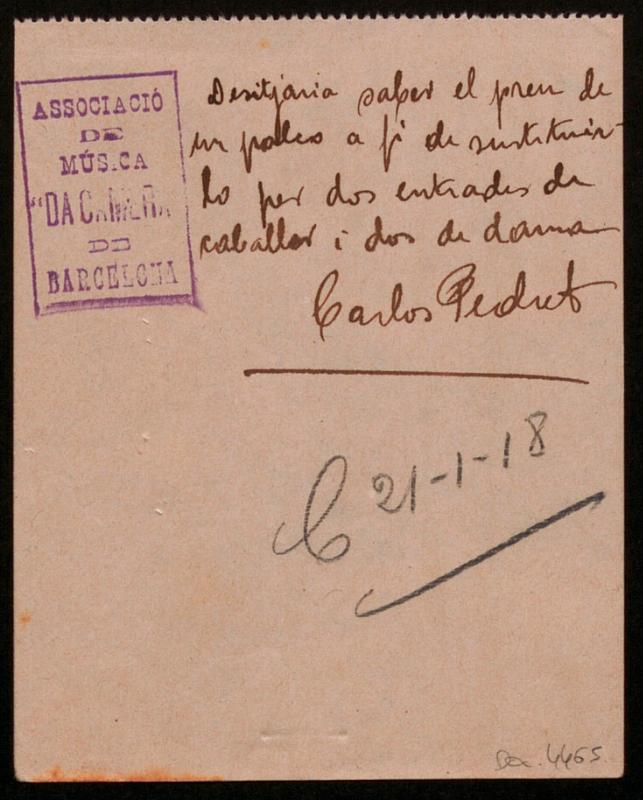 ASSOCIACIÓ
DE
MÚSICA
"DA CAMERA
DE
BARCELONA
Desitjaria saber el preu de
un palco a fi de sustituir-
lo per dos entrades de
caballer i dos de dama
Carlos Pedret
C 21-1-18
4465